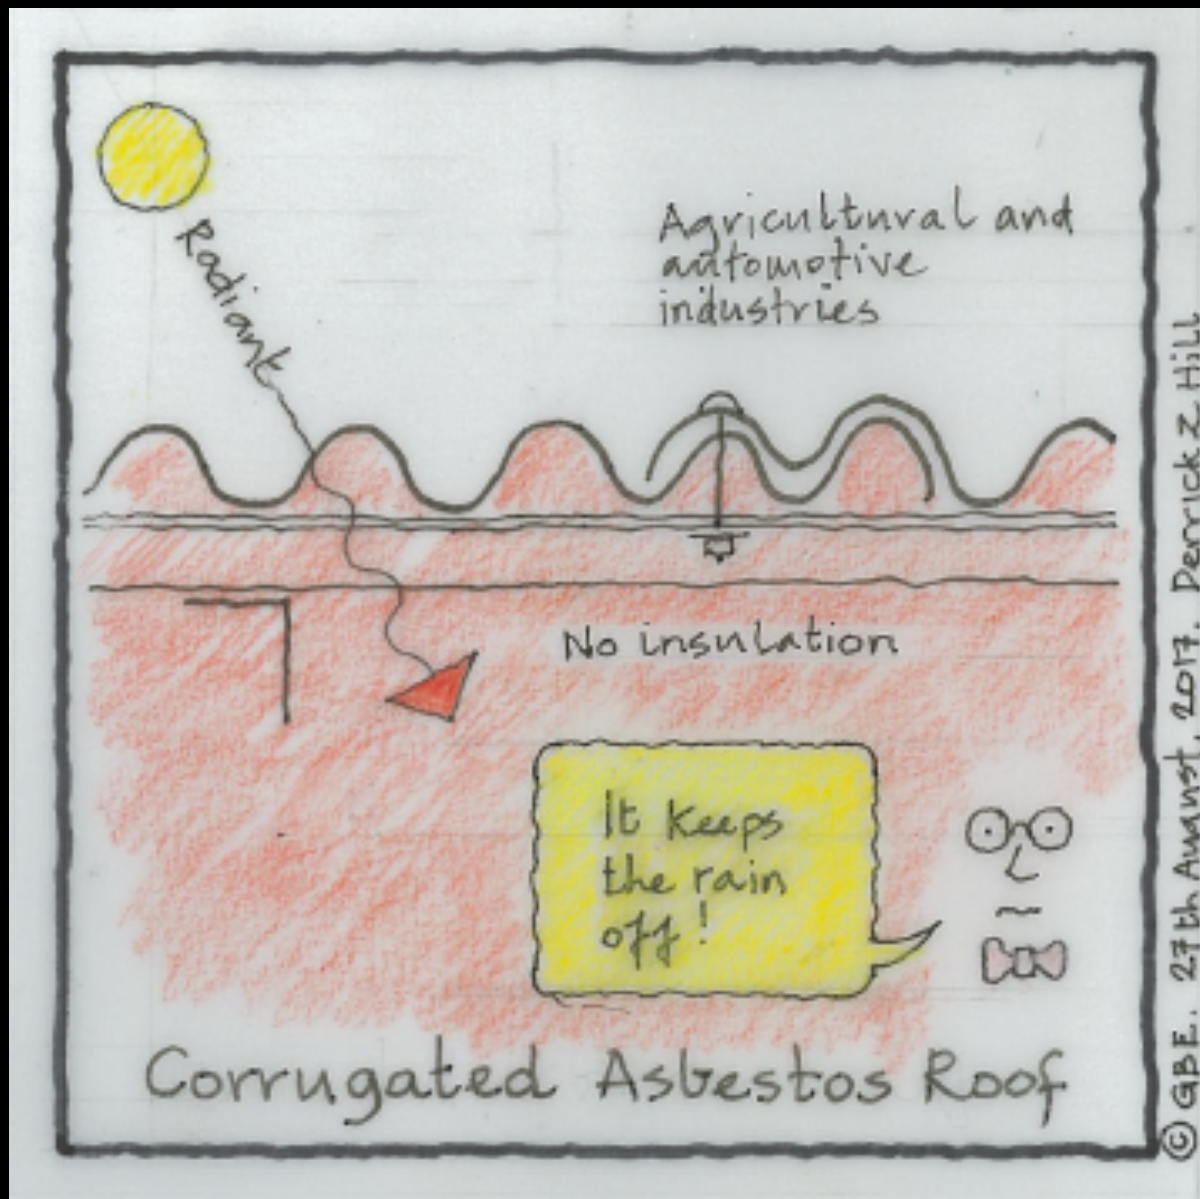 Radiant
Agricultural and
automotive
industries
No insulation
It keeps
the rain
off!
Corrugated Asbestos Roof
© GBE. 27th August, 2017. Derrick Z Hill